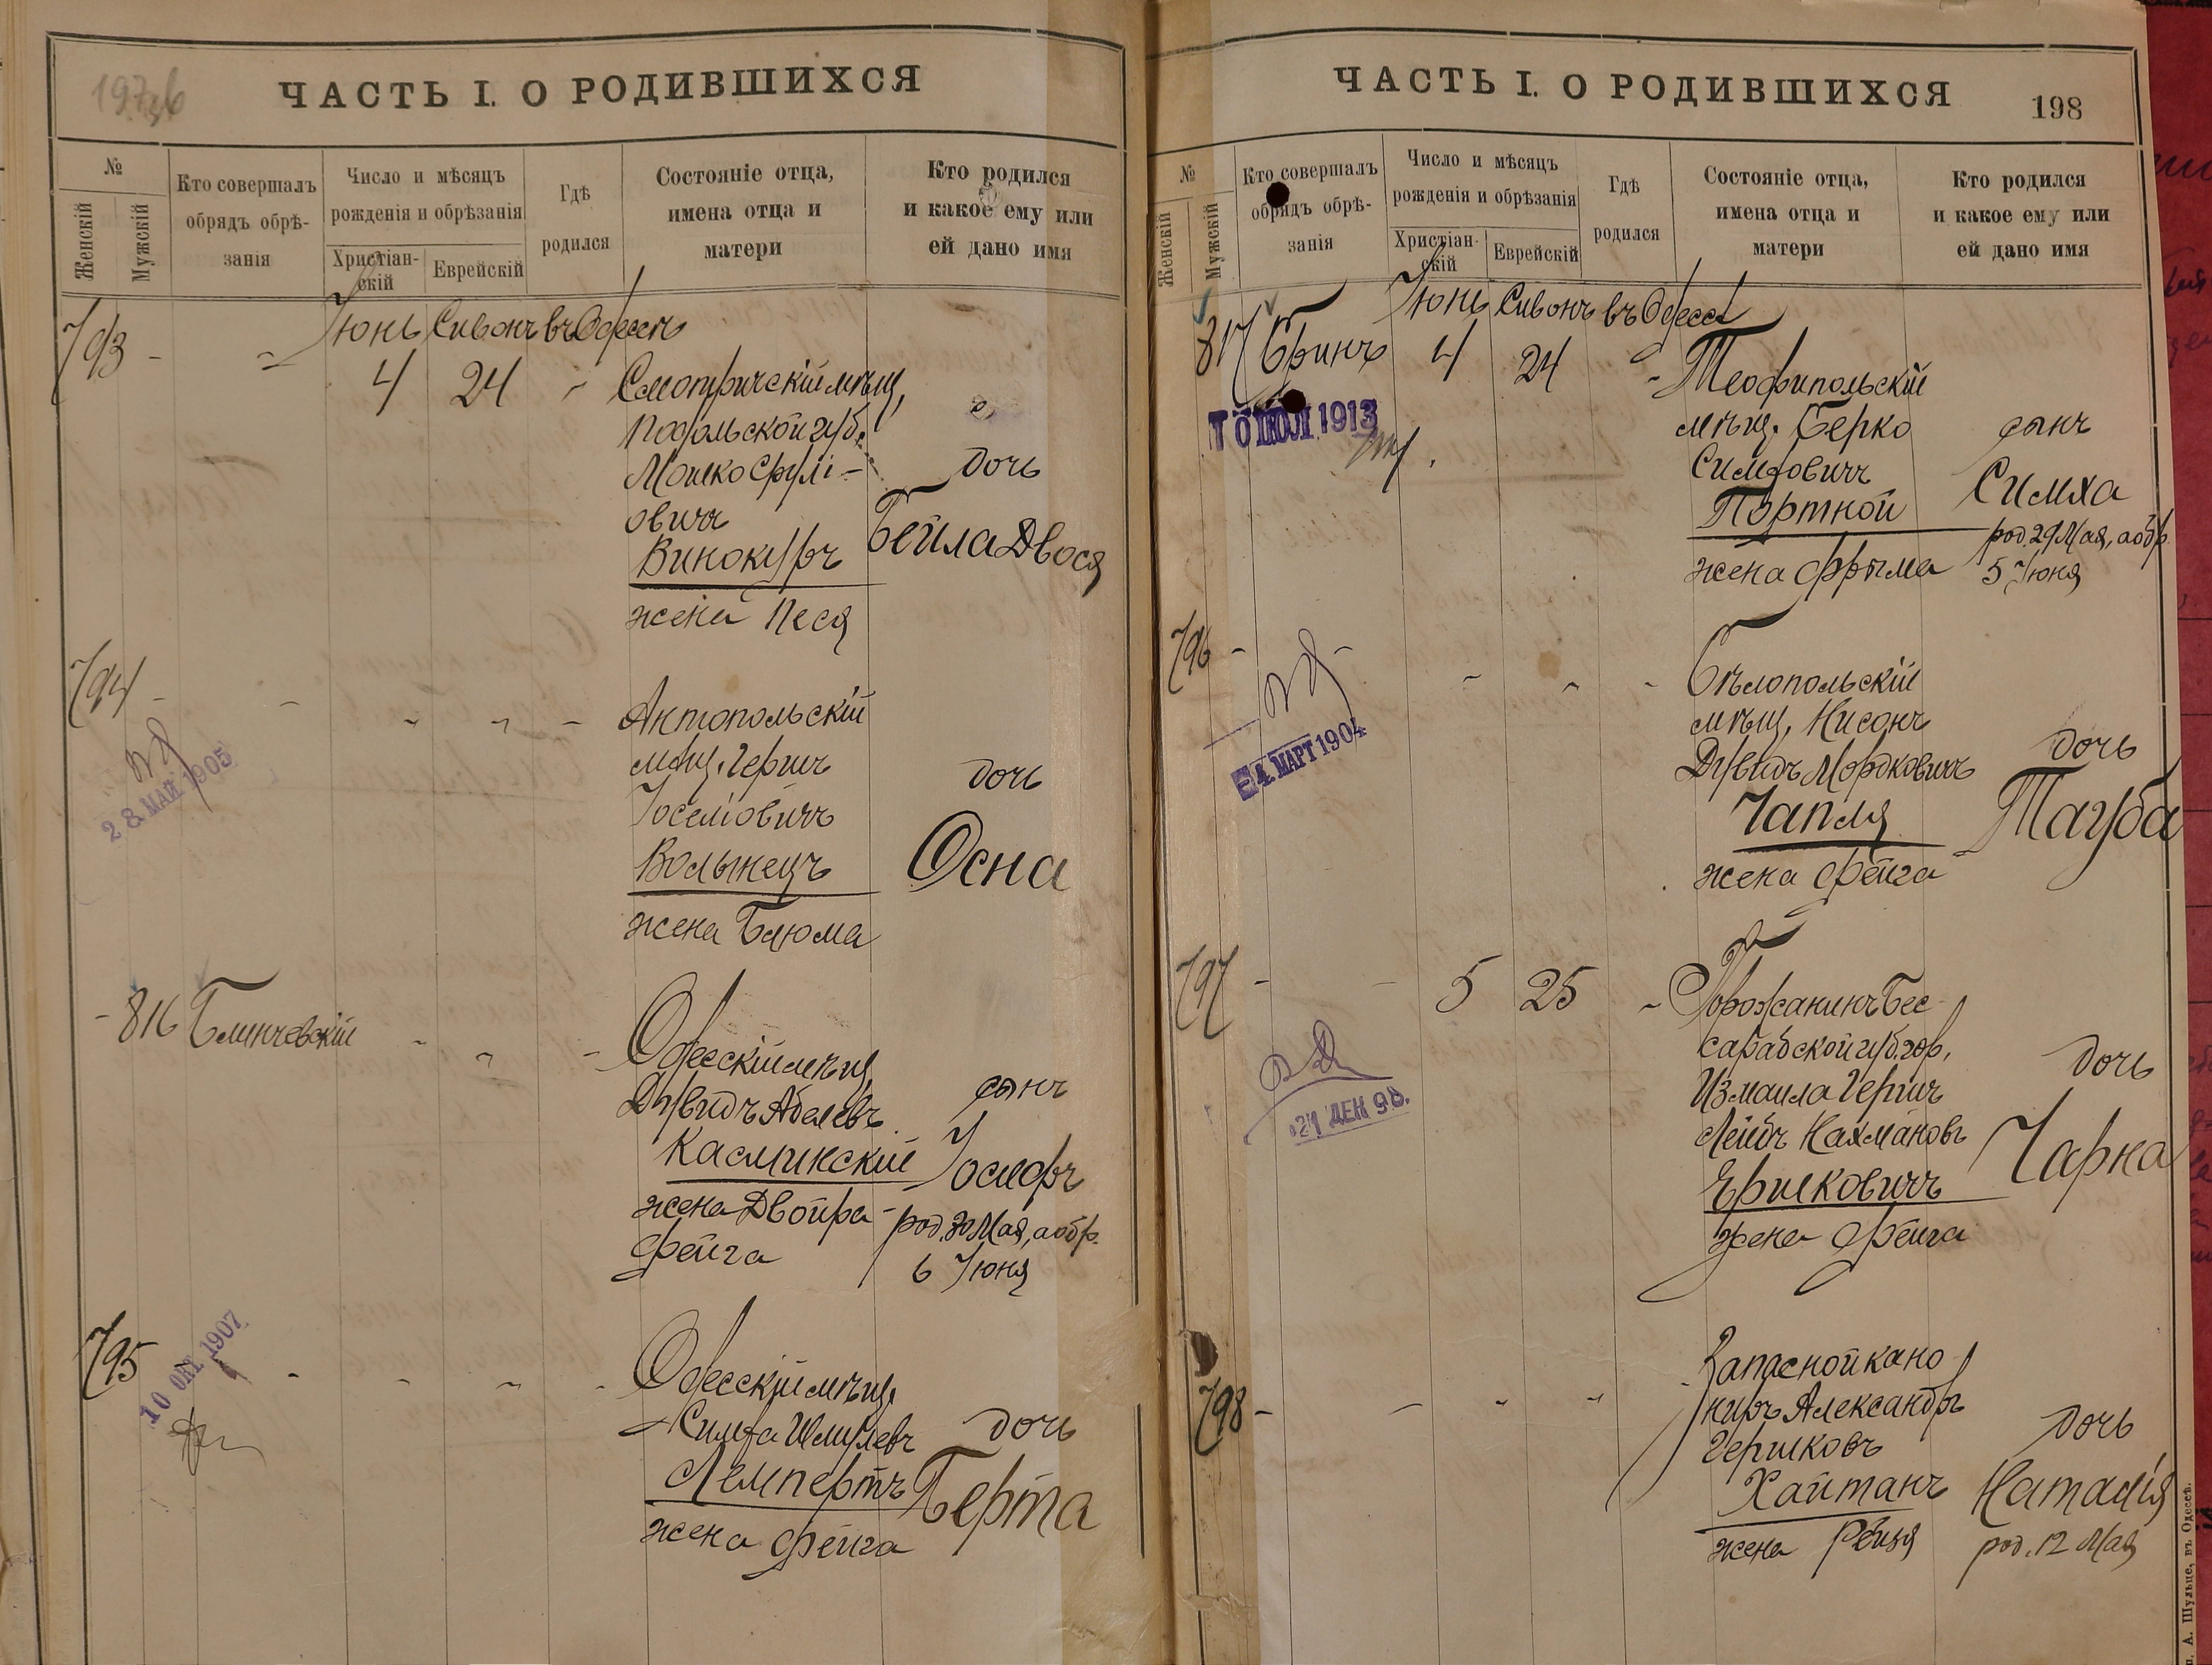 ЧАСТЬ I. О РОДИВШИХСЯ
№
Женскій
Мужскій
Кто совершалъ
обрядъ обрѣ-
занія
Число и мѣсяцъ
рожденія и обрѣзанія
Христіан-
скій
Еврейскій
Гдѣ
родился
Состояніе отца,
имена отца и
матери
Кто родился
и какое ему или
ей дано имя
Іюнь Сивонъ въ Одессѣ
793 -
4 24
Смотричскій мѣщ,
Подольской губ.
Мошко Сруліо-
вичъ
Винокуръ
жена Песя
дочь
Бейла Двося
794 -
28 МАЙ 1905
Антопольскій
мѣщ. Гершъ
Іоселіовичъ
Волынецъ
жена Блюма
дочь
Осна
- 816 Блинчевскій
Одесскій мѣщ,
Дувидъ Абелевъ
Касминскій
жена Двойра-
Фейга
сынъ
Іосифъ
род. 30 Мая, а обр.
6 Іюня
795
10 ОКТ. 1907
Одесскій мѣщ.
Симха Шмулевъ
Лемпертъ
жена Фейга
дочь
Берта
ЧАСТЬ I. О РОДИВШИХСЯ
198
№
Женскій
Мужскій
Кто совершалъ
обрядъ обрѣ-
занія
Число и мѣсяцъ
рожденія и обрѣзанія
Христіан-
скій
Еврейскій
Гдѣ
родился
Состояніе отца,
имена отца и
матери
Кто родился
и какое ему или
ей дано имя
Іюнь Сивонъ въ Одессѣ
817 Бринъ 4 24
ІЮЛ. 1913
Теофипольскій
мѣщ. Берко
Симховичъ
Портной
жена Фрыма
сынъ
Симха
род. 29 Мая, а обр.
5 Іюня
796 -
4 МАРТ 1904
Бѣлопольскій
мѣщ, Нисонъ
Дувидъ Мордковичъ
Чапля
жена Фейга
дочь
Тауба
797 -
5 25
21 ДЕК 98.
Горожанинъ Бес-
сарабской губ. гор,
Измаила Гершъ
Лейбъ Нахмановъ
Ершковичъ
жена Фейга
дочь
Чарна
798 -
Запасной кано-
ниръ Александръ
Гершковъ
Хайтанъ
жена Рейзя
дочь
Наталія
род. 12 Мая
А. Шульце, въ Одессѣ.